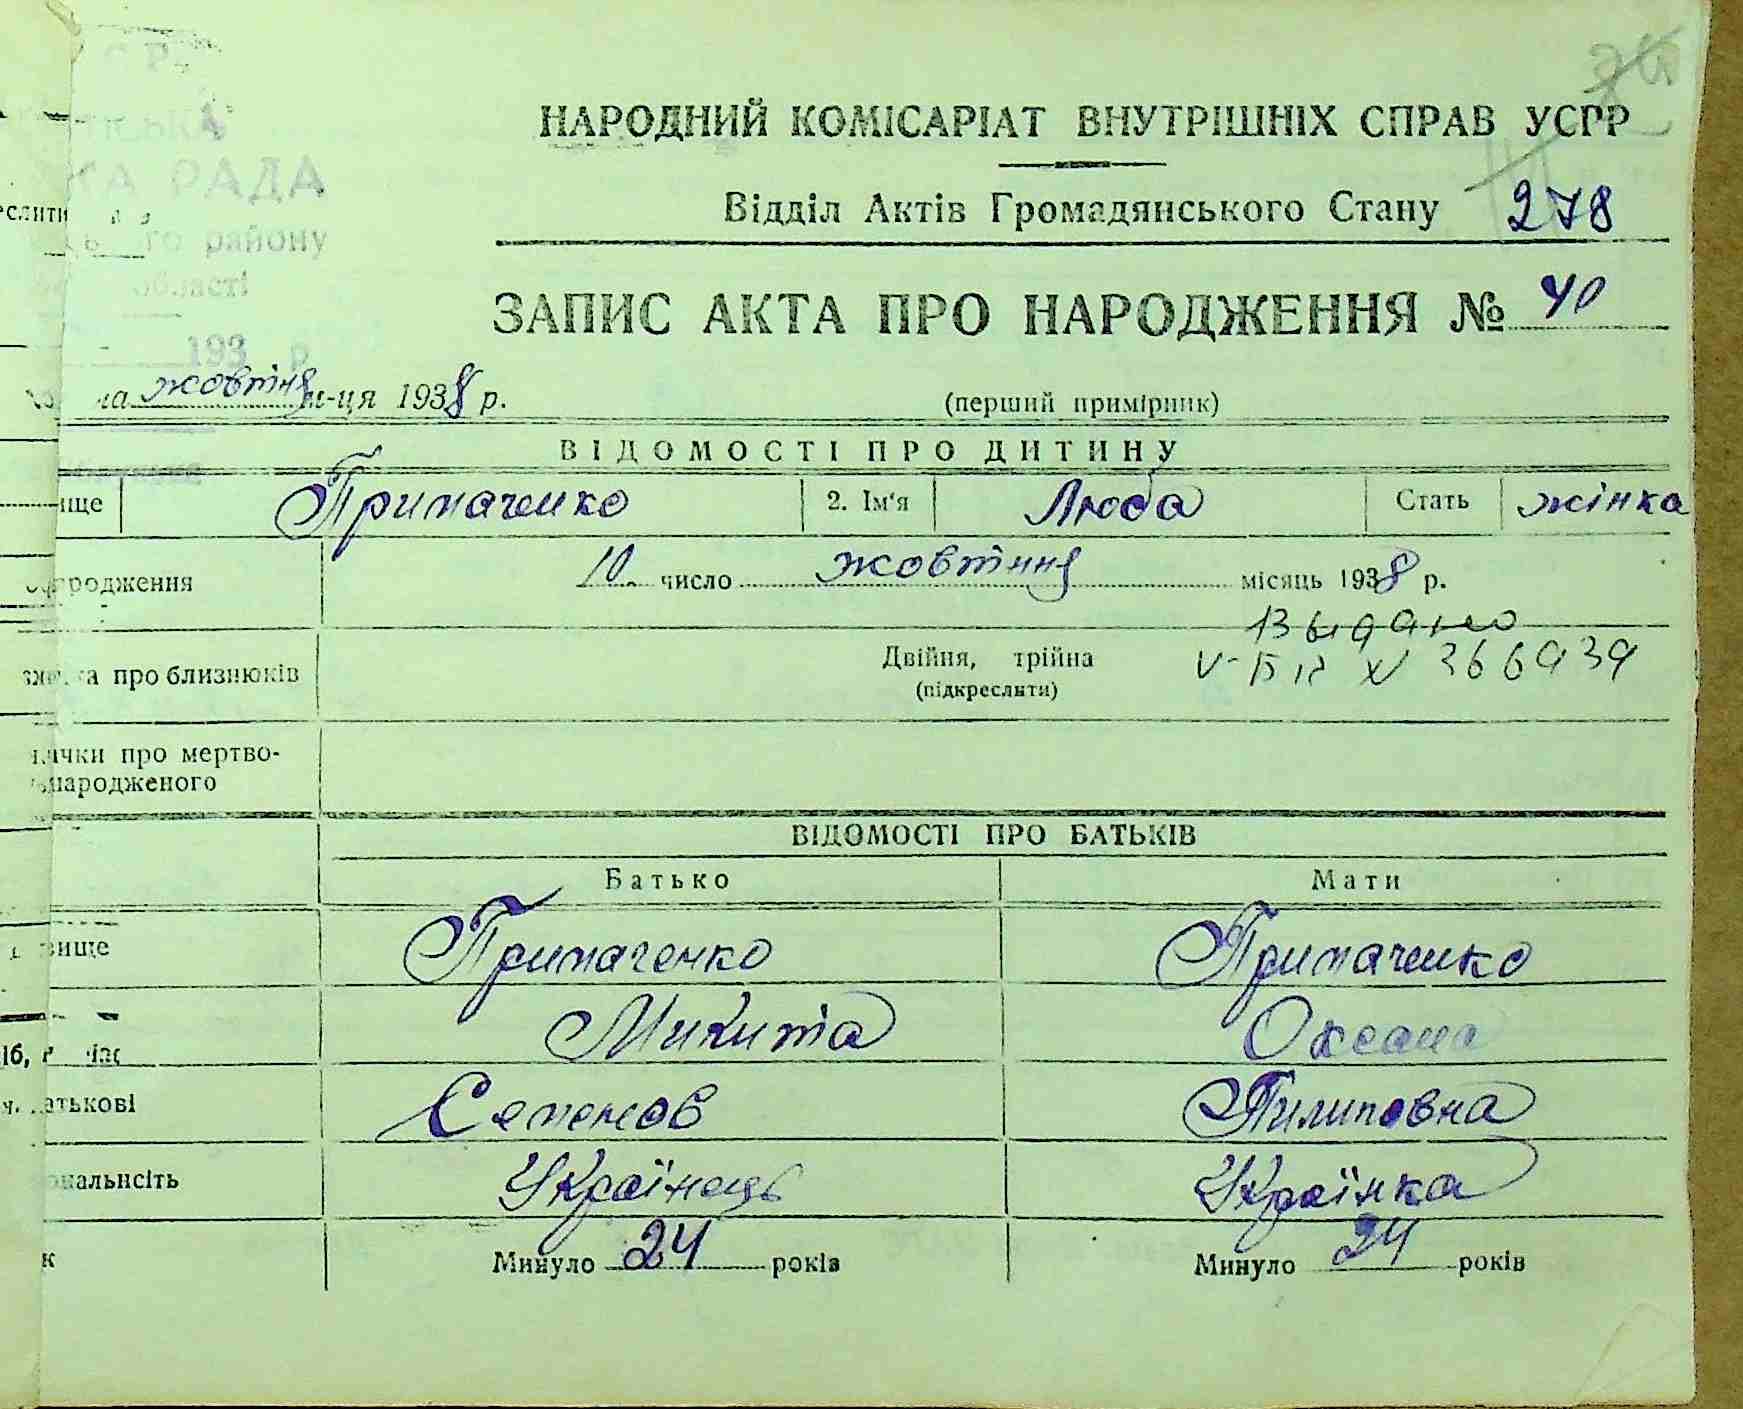 РАДА
району
області
193 р.
НАРОДНИЙ КОМІСАРІАТ ВНУТРІШНІХ СПРАВ УСРР
Відділ Актів Громадянського Стану 278
ЗАПИС АКТА ПРО НАРОДЖЕННЯ № 40
жовтня м-ця 1938 р. (перший примірник)
ВІДОМОСТІ ПРО ДИТИНУ
ище Примаченко 2. Ім'я Люба Стать жінка
родження 10. число жовтння місяць 1938 р.
Выдано
про близнюків Двійня, трійна V-БП № 366939
(підкреслити)
ачки про мертво-
народженого
ВІДОМОСТІ ПРО БАТЬКІВ
Батько Мати
вище Примаченко Примаченко
Микита Оксана
атькові Семенов Пилиповна
ональнсіть Українець Українка
к Минуло 24 років Минуло 24 років